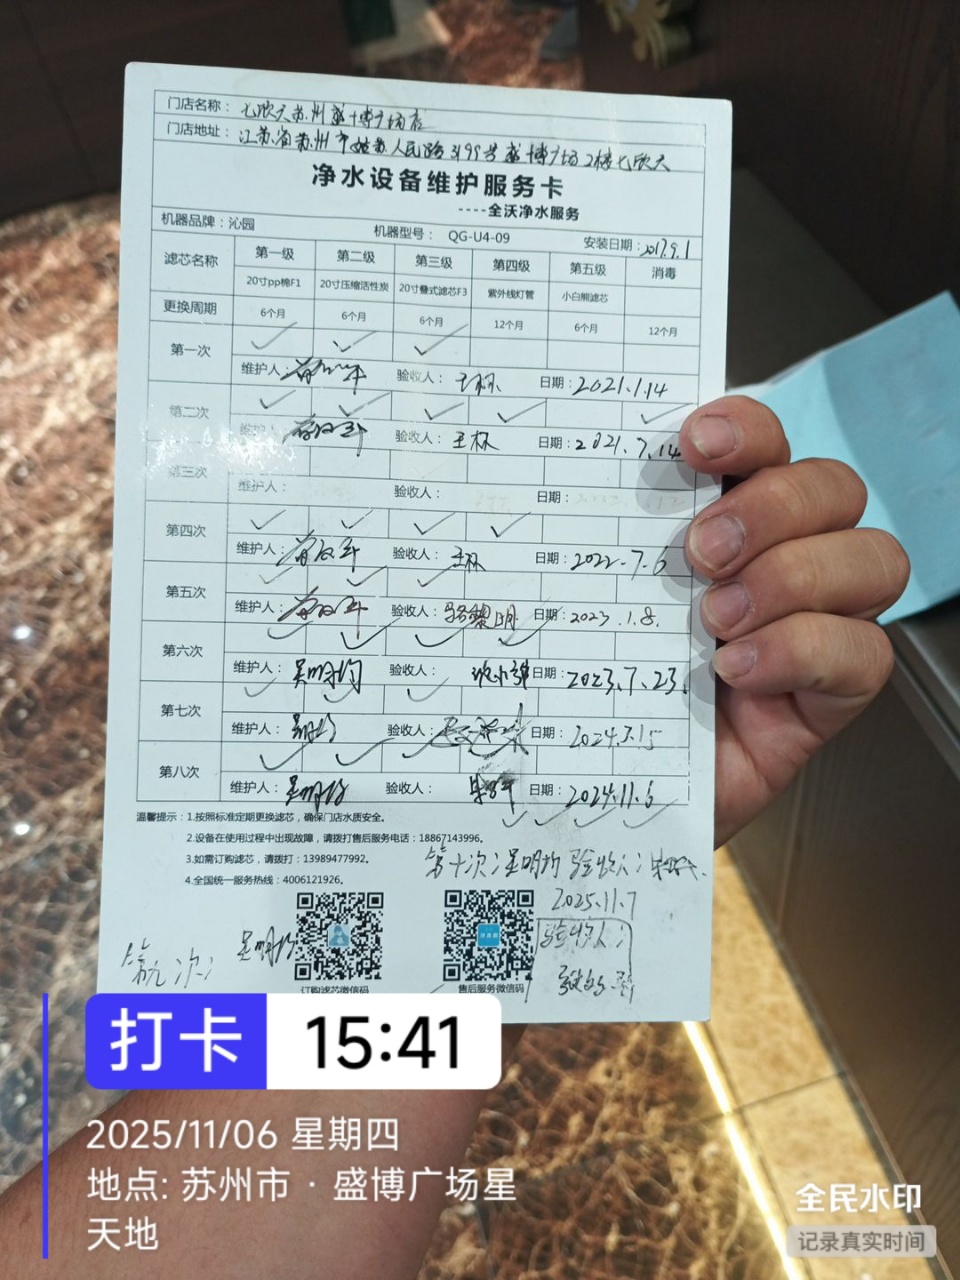 门店名称：七欣天苏州盛博广场店
门店地址：江苏省苏州市姑苏人民路3199号盛博广场2楼七欣天
净水设备维护服务卡
----全沃净水服务
机器品牌：沁园 机器型号： QG-U4-09 安装日期：2017.9.1
滤芯名称 第一级 第二级 第三级 第四级 第五级 消毒
20寸pp棉F1 20寸压缩活性炭 20寸叠式滤芯F3 紫外线灯管 小白熊滤芯
更换周期 6个月 6个月 6个月 12个月 6个月 12个月
第一次 ✓ ✓ ✓
维护人： 验收人：王林 日期：2021.1.14
第二次 ✓ ✓ ✓ ✓ ✓
维护人： 验收人：王林 日期：2021.7.14
第三次
维护人： 验收人： 日期：
第四次 ✓ ✓ ✓ ✓
维护人： 验收人：王林 日期：2022.7.6
第五次 ✓ ✓ ✓
维护人： 验收人： 日期：2023.1.8.
第六次 ✓ ✓ ✓ ✓
维护人：吴明均 验收人： 日期：2023.7.23.
第七次 ✓ ✓ ✓
维护人：吴明均 验收人： 日期：2024.3.15
第八次 ✓ ✓ ✓ ✓
维护人：吴明均 验收人： 日期：2024.11.6
温馨提示：1.按照标准定期更换滤芯，确保门店水质安全。
2.设备在使用过程中出现故障，请拨打售后服务电话：18867143996。
3.如需订购滤芯，请拨打：13989477992。
4.全国统一服务热线：4006121926。
✓ ✓ ✓ ✓
第十次：吴明均 验收人：
2025.11.7
第九次： 吴明均
验收人：
订购滤芯微信码 售后服务微信码
打卡 15:41
2025/11/06 星期四
地点: 苏州市 · 盛博广场星
天地
全民水印
记录真实时间